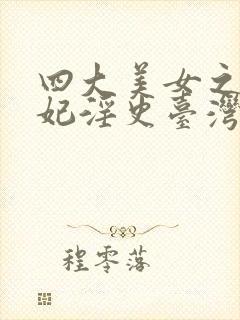 四大美女之
妃淫史臺灣
程零落